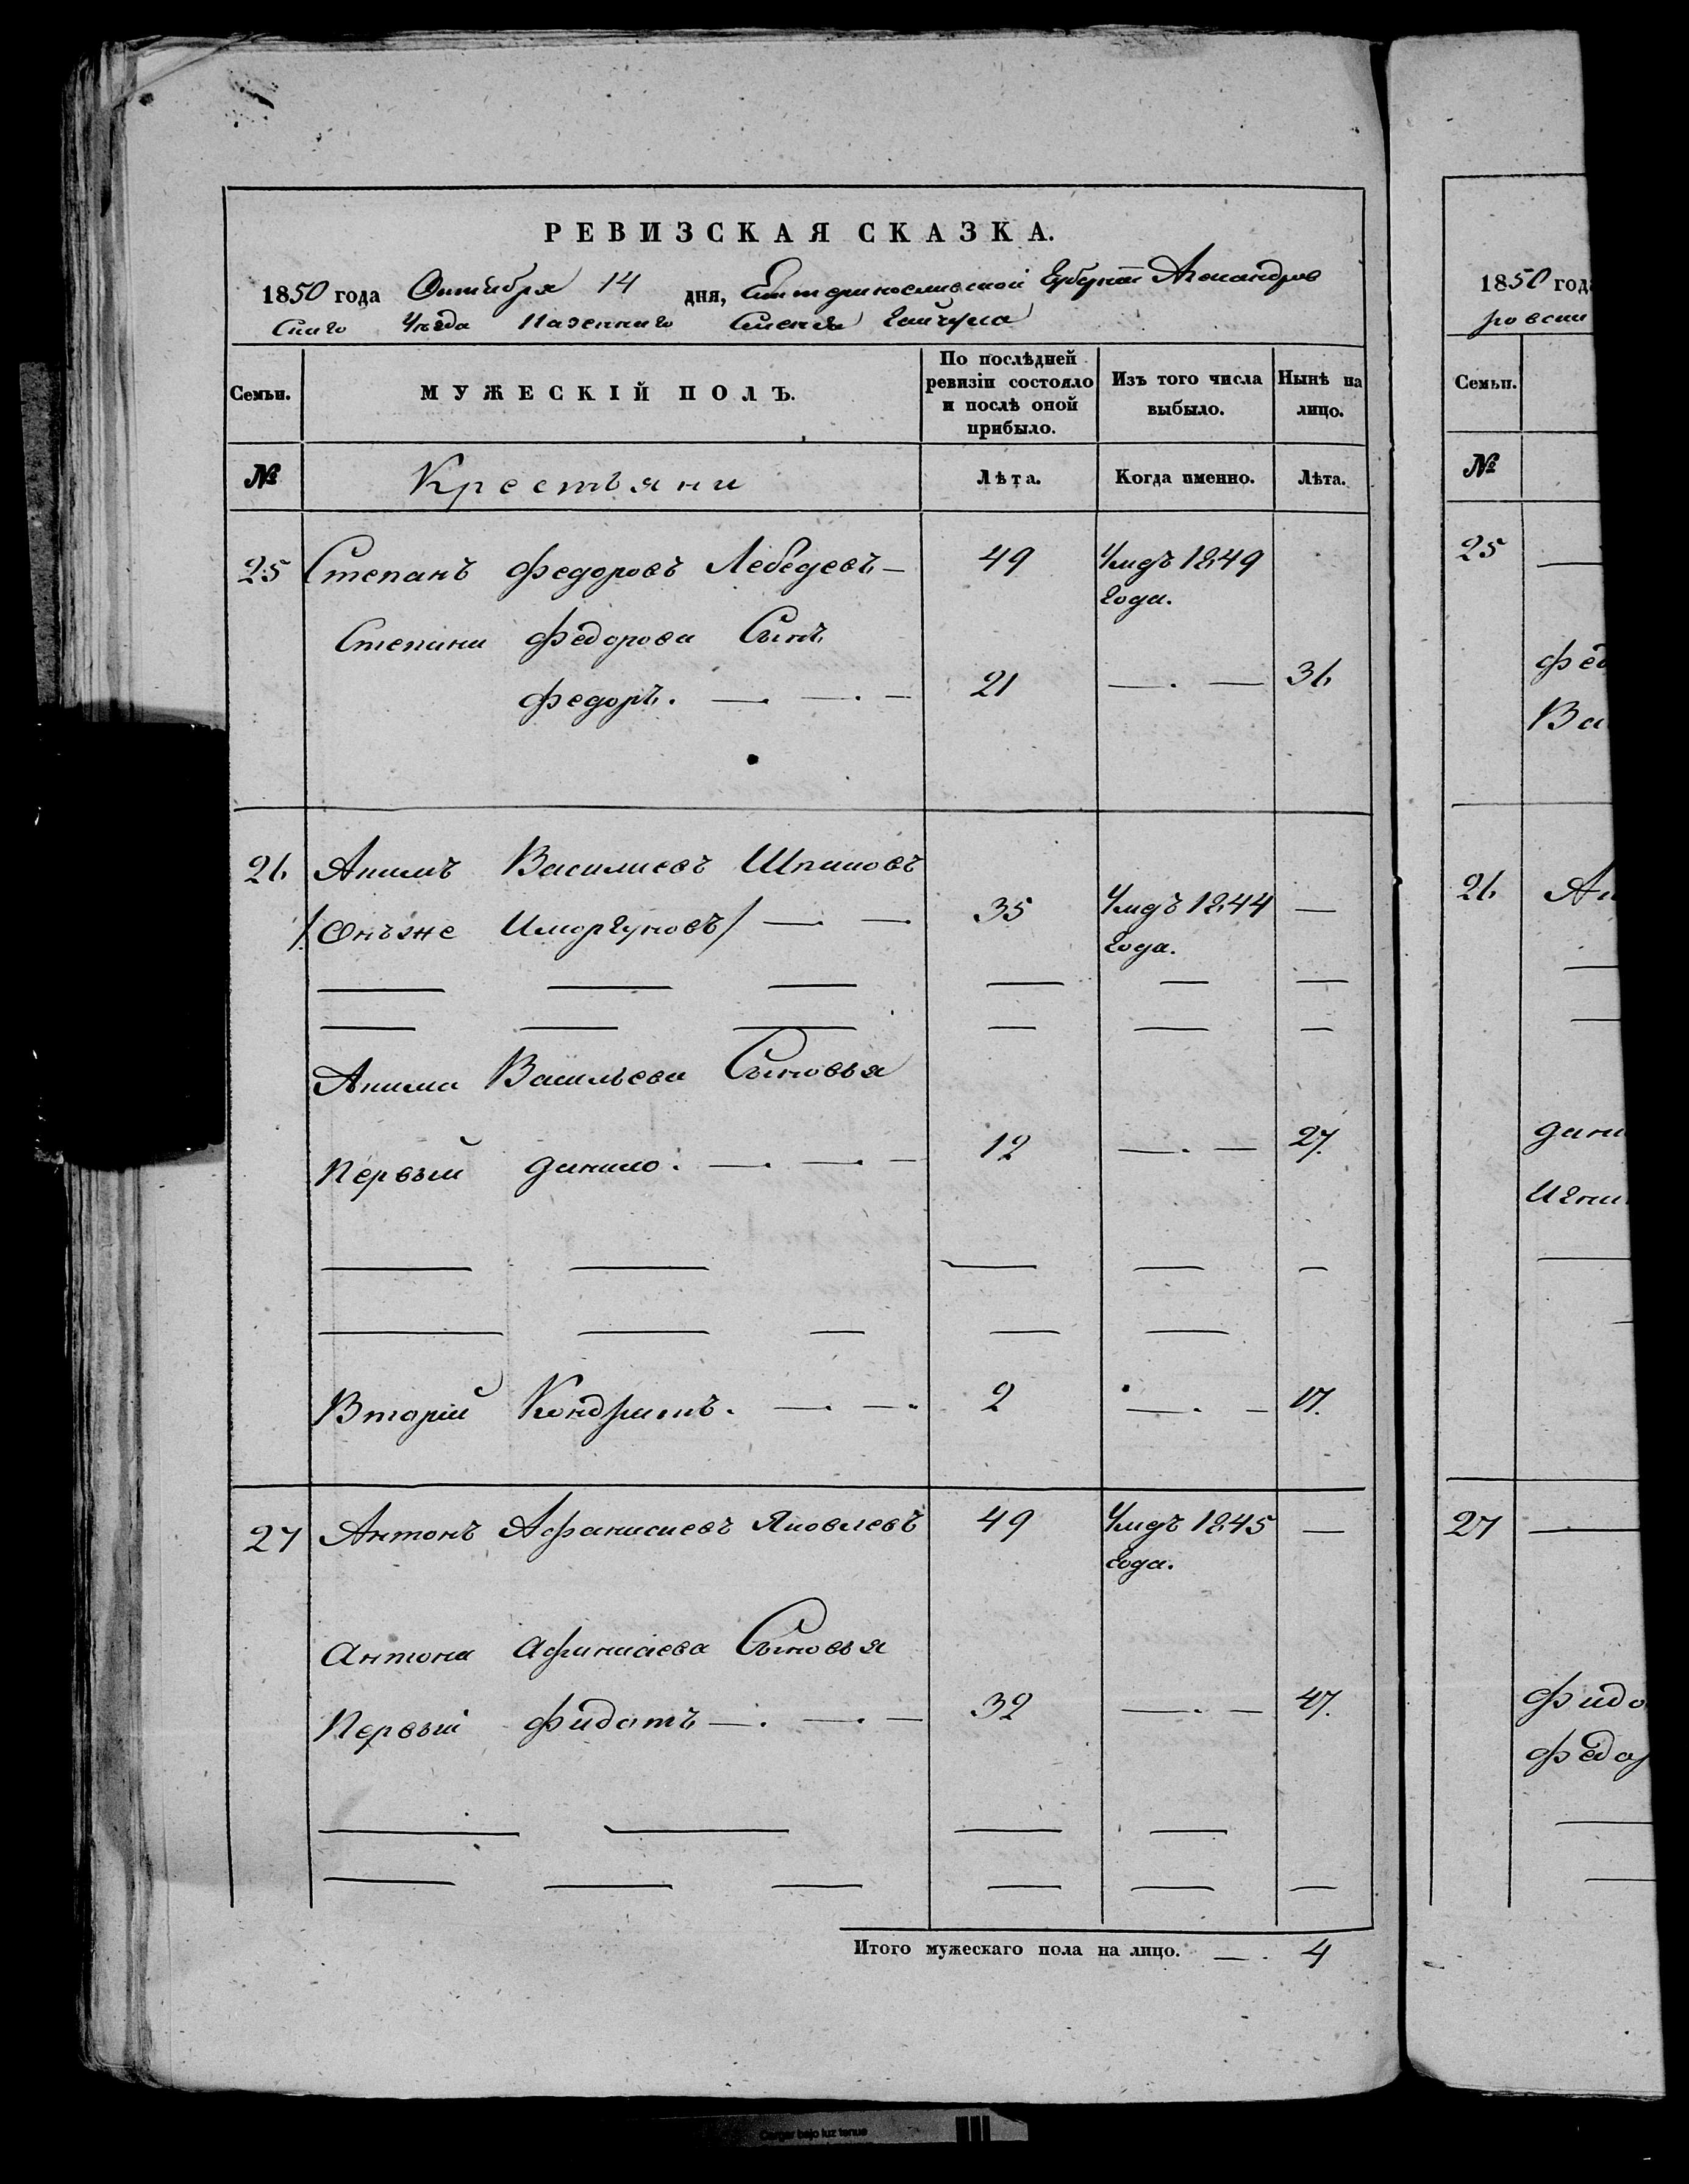 РЕВИЗСКАЯ СКАЗКА.
1850 года Октября 14 дня, Екатеринославской Губерніи Александров
скаго Уѣзда Казеннаго Селенія Гайчула
Семьи.
МУЖЕСКІЙ ПОЛЪ.
По послѣдней ревизіи состояло и послѣ оной прибыло.
Изъ того числа выбыло.
Нынѣ на лицо.
№ Крестьяни Лѣта. Когда именно. Лѣта.
25 Степанъ Федоровъ Лебедевъ — 49 Умеръ 1849
года.
Степана Федорова Сынъ
Федоръ. 21 — . — 36
26 Акимъ Василиевъ
/Онъже 35 Умеръ 1844 —
года.
Акима Васильева Сыновья
Первый Данило. 12 — . — 27.
Вторій Кондратъ. 2 — . — 17.
27 Антонъ Афанасиевъ Яковлевъ 49 Умеръ 1845 —
года.
Антона Афанасиева Сыновья
Первый Фидотъ 32 — . — 47.
Итого мужескаго пола на лицо. — . 4
1850 года
ровски
Семьи.
№
25
Фед
Ва
26 Ак
Дани
Игна
27
Фидо
Федо
Cargar bajo luz tenue